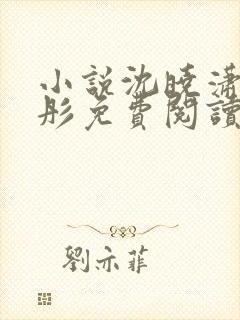 小説沈曉瀟
彤免費閱讀
劉亦菲